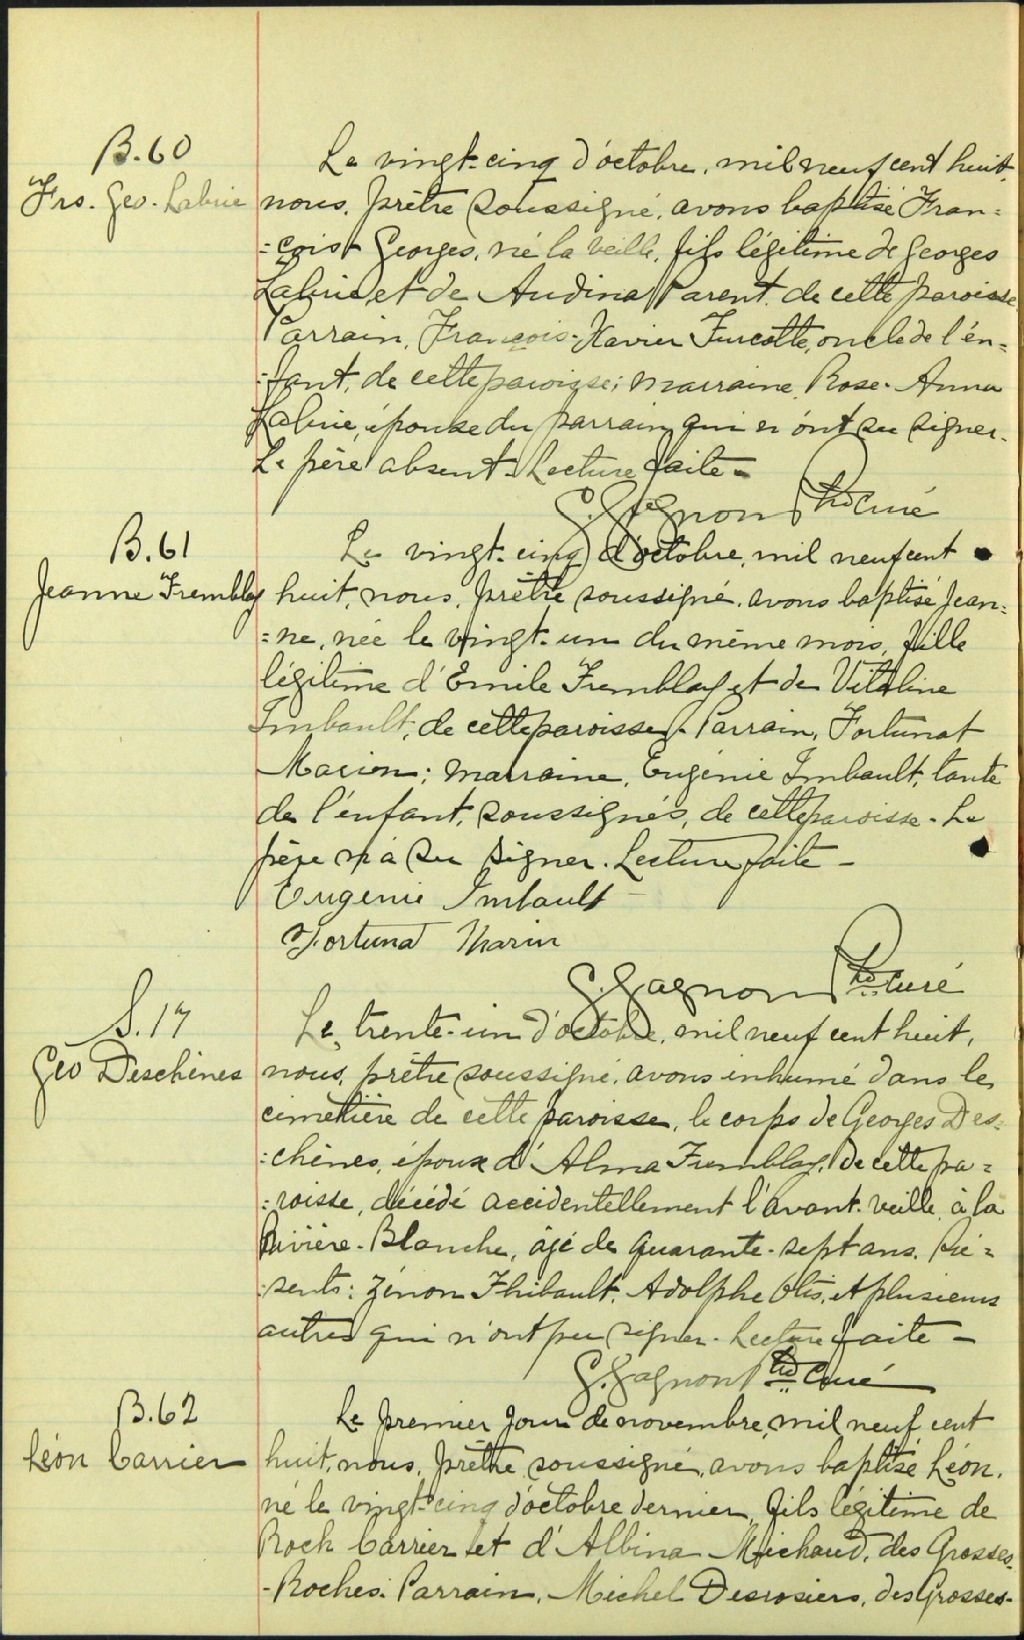 B.60
Frs. Geo. Labrie
Le vingt-cinq d'octobre, mil neuf cent huit,
nous, prêtre soussigné, avons baptisé Fran=
=çois Georges, né la veille, fils légitime de Georges
Labrie et de Audina Parent, de cette paroisse
Parrain, François-Xavier Turcotte, oncle de l'en=
=fant, de cette paroisse; marraine, Rose-Anna
Labrie, épouse du parrain qui n'ont su signer.
Le père absent. Lecture faite -
G. Gagnon Ptre Curé
B.61
Jeanne Tremblay
Le vingt-cinq d'octobre, mil neuf cent
huit, nous, prêtre soussigné, avons baptisé Jean=
=ne, née le vingt-un du même mois, fille
légitime d'Emile Tremblay et de Vitaline
Imbault, de cette paroisse. Parrain, Fortunat
Marion; marraine, Eugénie Imbault, tante
de l'enfant, soussignés, de cette paroisse. Le
père n'a su signer. Lecture faite -
Eugenie Imbault
Fortunat Marin
G. Gagnon Ptre Curé
S.17
Geo Deschènes
Le trente-un d'octobre, mil neuf cent huit,
nous, prêtre soussigné, avons inhumé dans le
cimetière de cette paroisse, le corps de Georges Des=
=chènes, époux d'Alma Tremblay, de cette pa=
=roisse, décédé accidentellement l'avant-veille, à la
Rivière-Blanche, âgé de quarante-sept ans. Pré=
=sents: Zénon Thibault, Adolphe Otis, et plusieurs
autres qui n'ont pu signer. Lecture faite -
G. Gagnon Ptre Curé
B.62
Léon Carrier
Le premier jour de novembre, mil neuf cent
huit, nous, prêtre soussigné, avons baptisé Léon,
né le vingt-cinq d'octobre dernier, fils légitime de
Roch Carrier et d'Albina Michaud, des Grosses-
-Roches. Parrain, Michel Desrosiers, des Grosses-